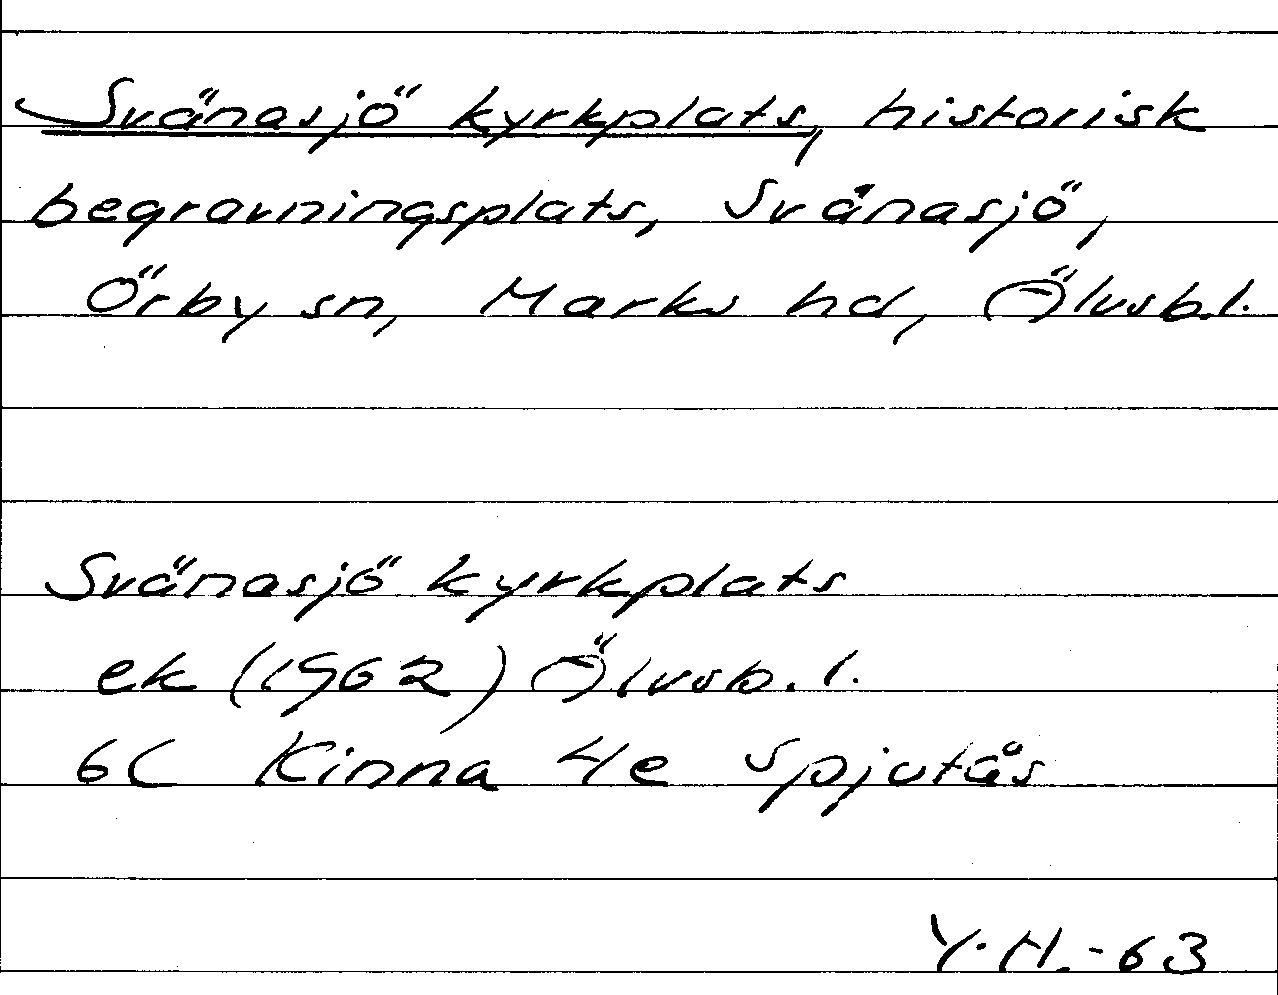 Svänasjö kyrkplats, historisk
begravningsplats, Svänasjö,
Örby sn, Marks hd, Älvsb.l.
Svänasjö kyrkplats
ek (1962) Älvsb.l.
6C Kinna 4e Spjutås
Y.H.-63